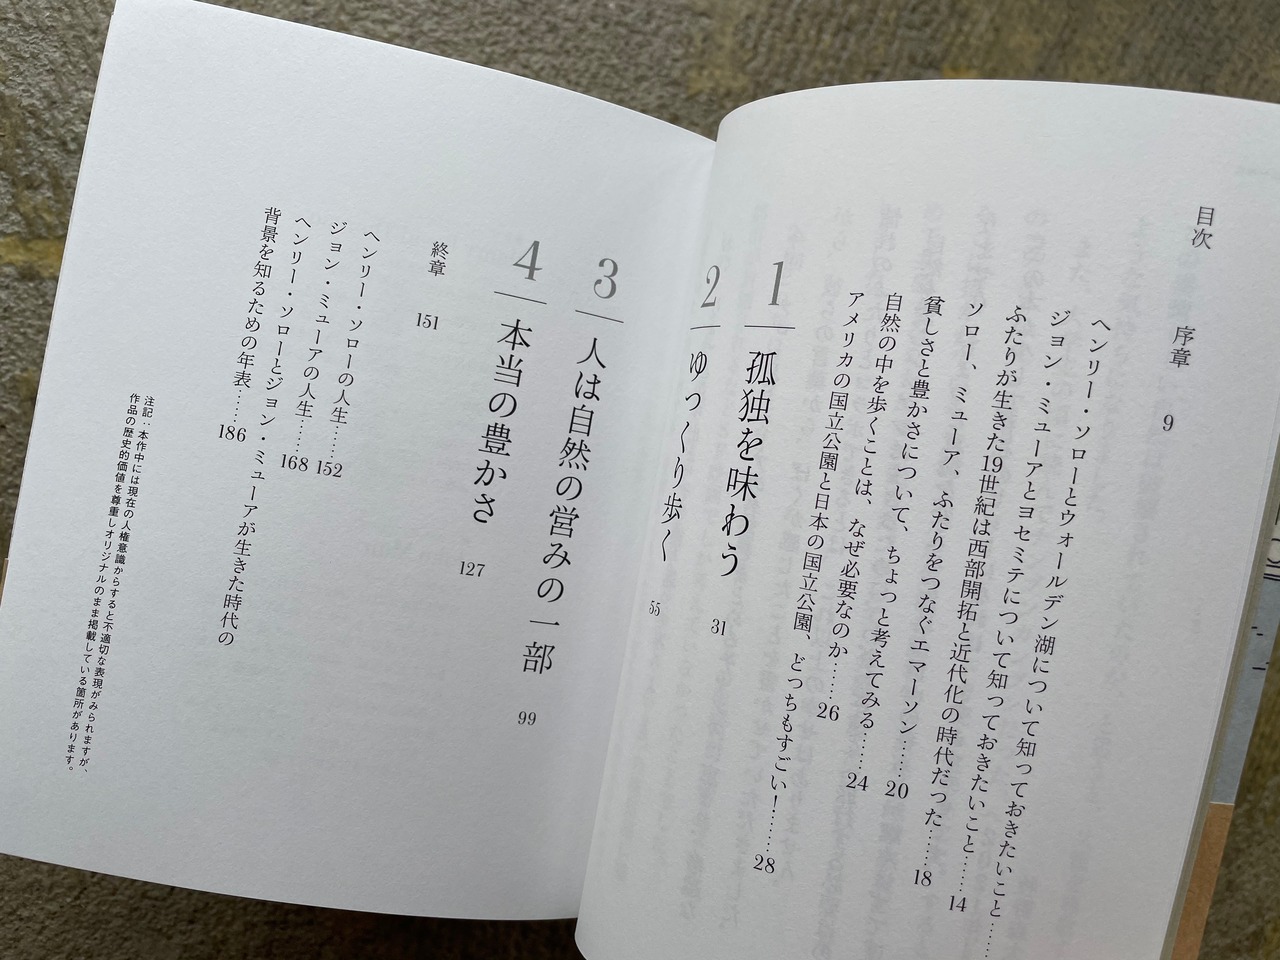 目次
序章 9
ヘンリー・ソローとウォールデン湖について知っておきたいこと……
ジョン・ミューアとヨセミテについて知っておきたいこと……14
ふたりが生きた19世紀は西部開拓と近代化の時代だった……18
ソロー、ミューア、ふたりをつなぐエマーソン……20
貧しさと豊かさについて、ちょっと考えてみる……24
自然の中を歩くことは、なぜ必要なのか……26
アメリカの国立公園と日本の国立公園、どっちもすごい!……28
1 孤独を味わう 31
2 ゆっくり歩く 55
3 人は自然の営みの一部 99
4 本当の豊かさ 127
終章 151
ヘンリー・ソローの人生……152
ジョン・ミューアの人生……168
ヘンリー・ソローとジョン・ミューアが生きた時代の
背景を知るための年表……186
注記:本作中には現在の人権意識からすると不適切な表現がみられますが、
作品の歴史的価値を尊重しオリジナルのまま掲載している箇所があります。